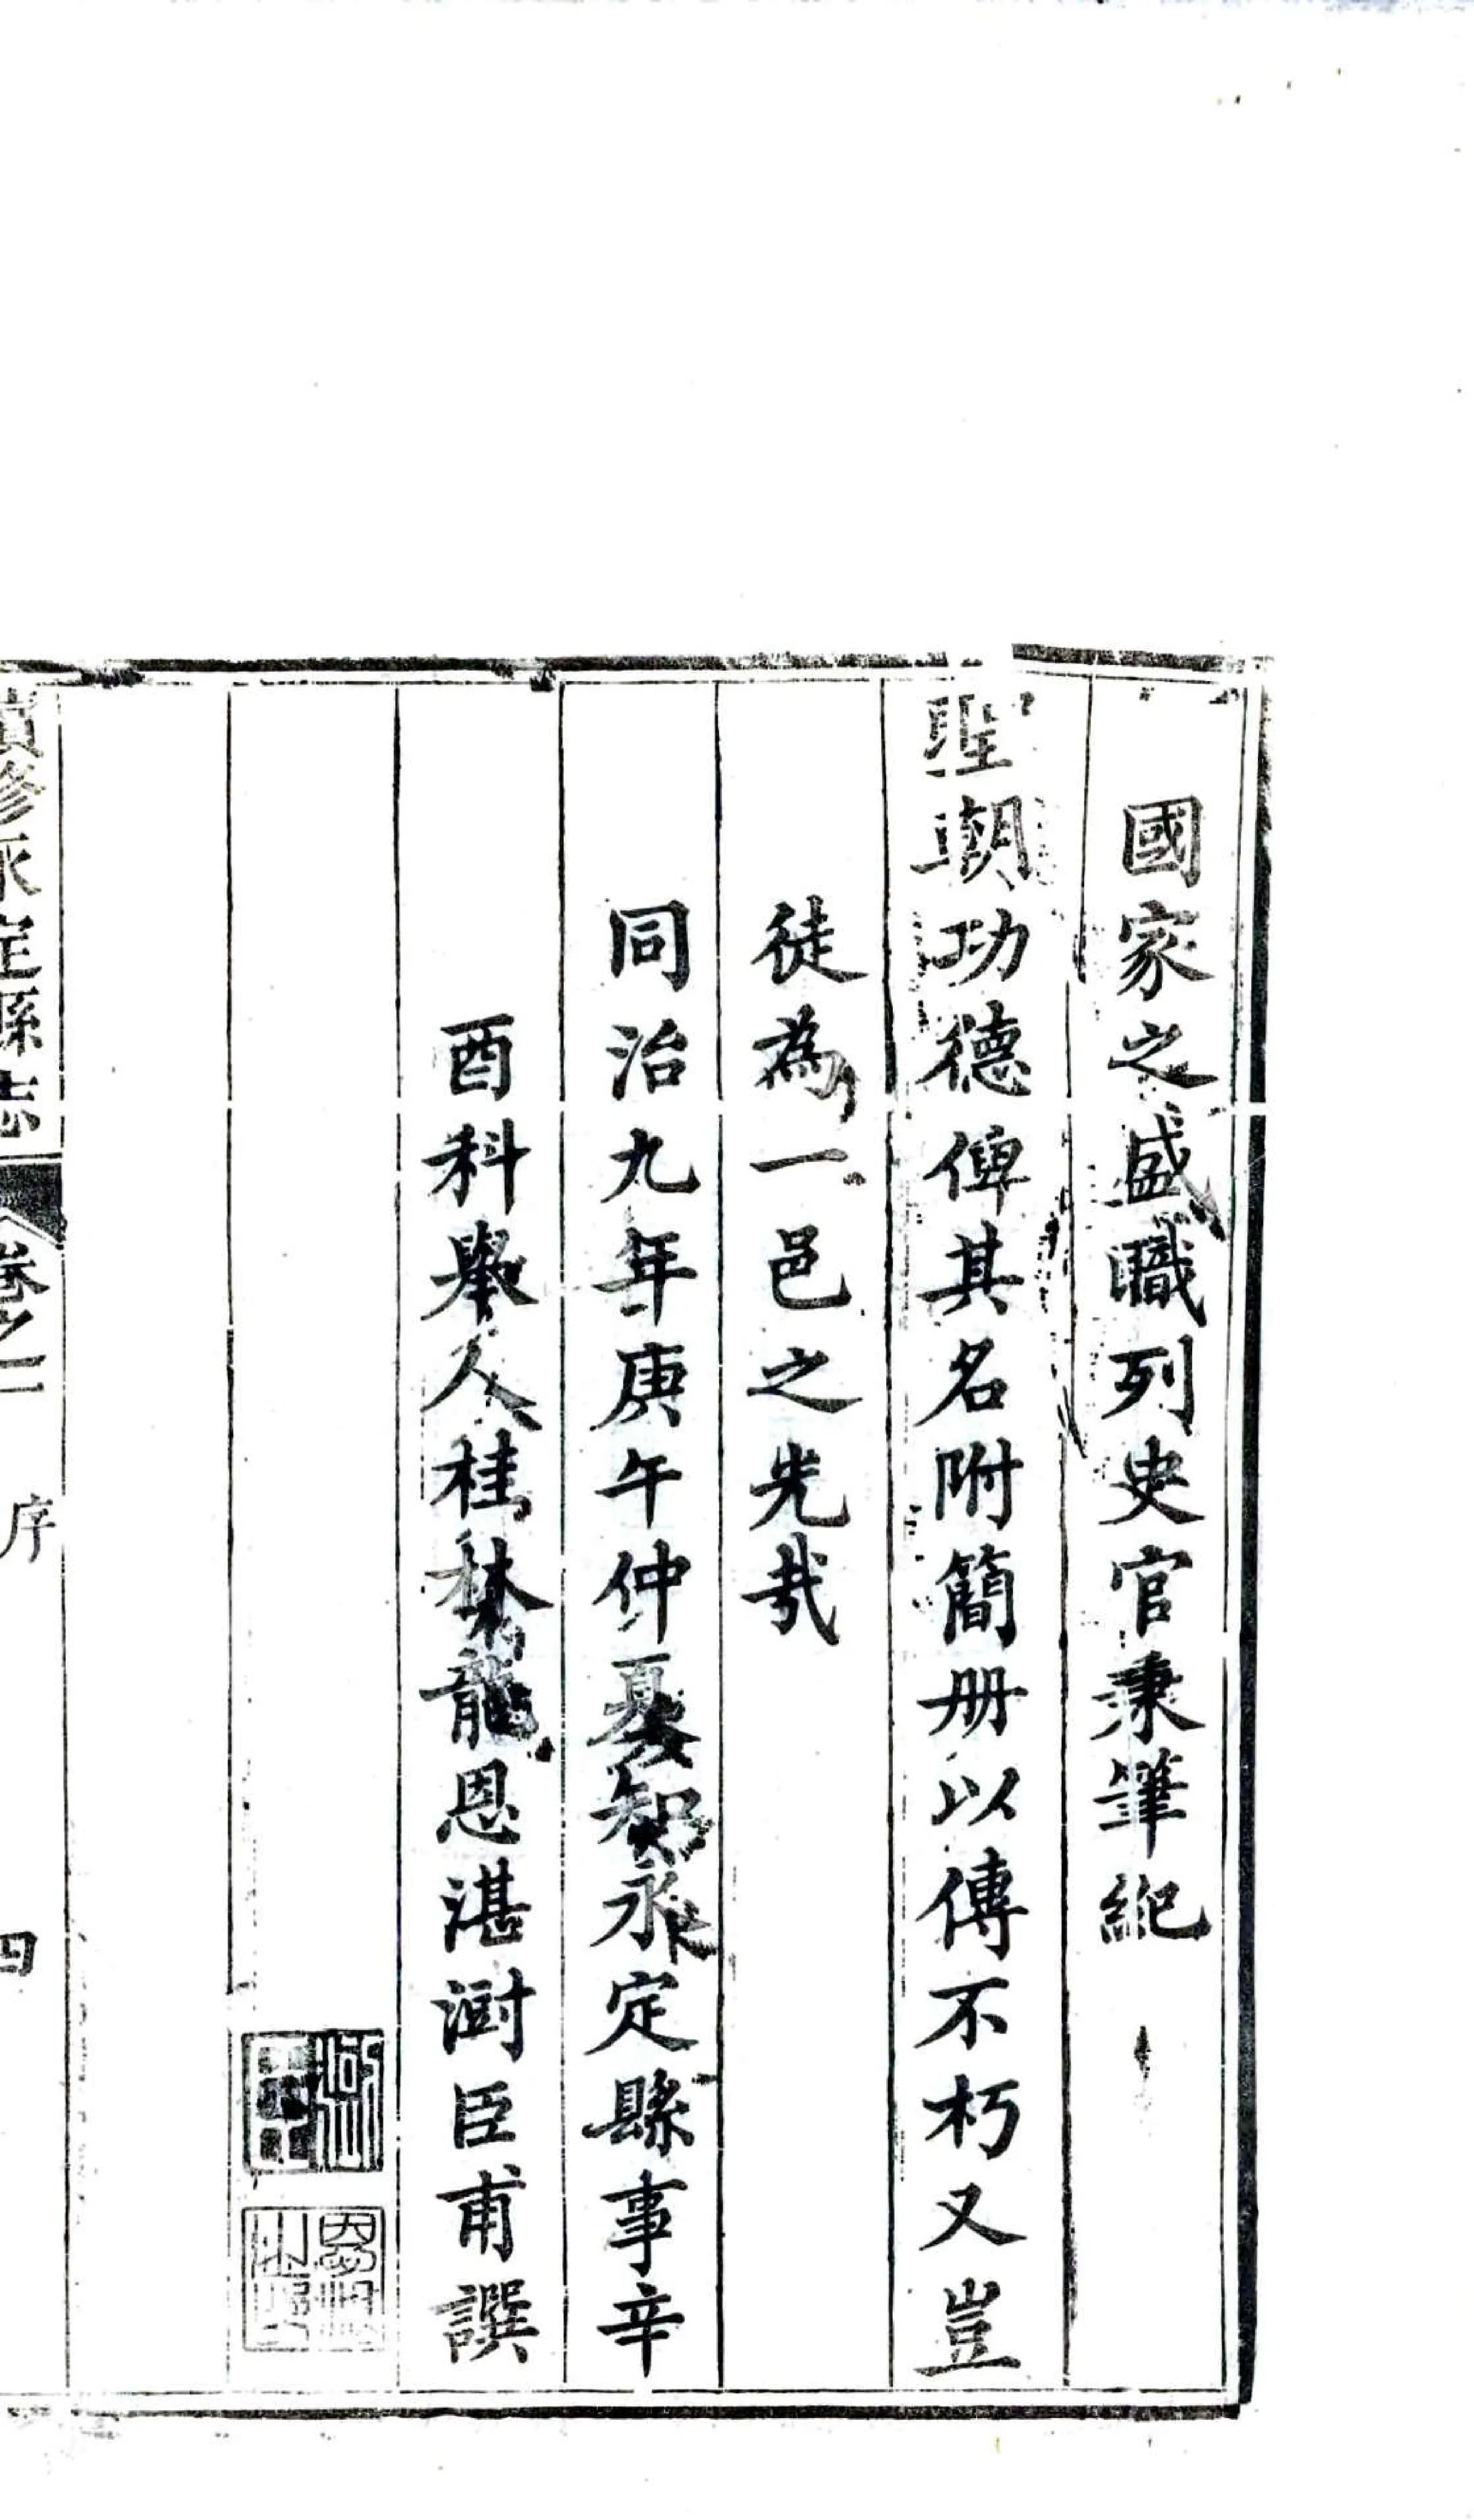 國家之盛職列史官秉筆紀
聖朝功德俾其名附簡册以傳不朽又豈
徒為一邑之光哉
同治九年庚午仲夏知永定縣事辛
酉科舉人桂林龍恩湛澍臣甫譔
續修永定縣志 卷之一 序 四